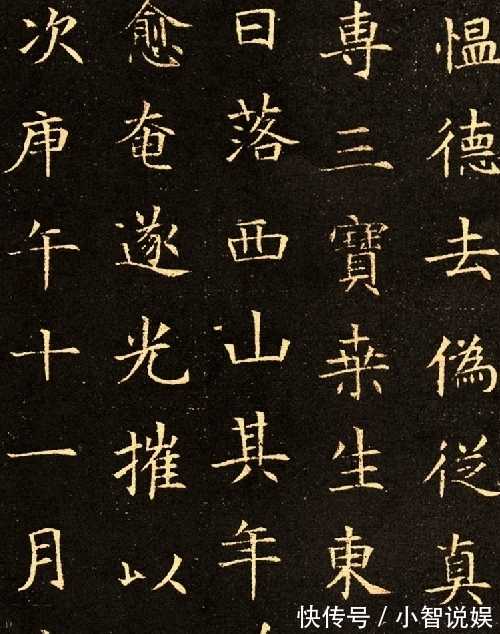 愠德去偽従真
専三寶桒生東
日落西山其年
愈奄遂光摧以
次庚午十一月
快传号/小智说娱